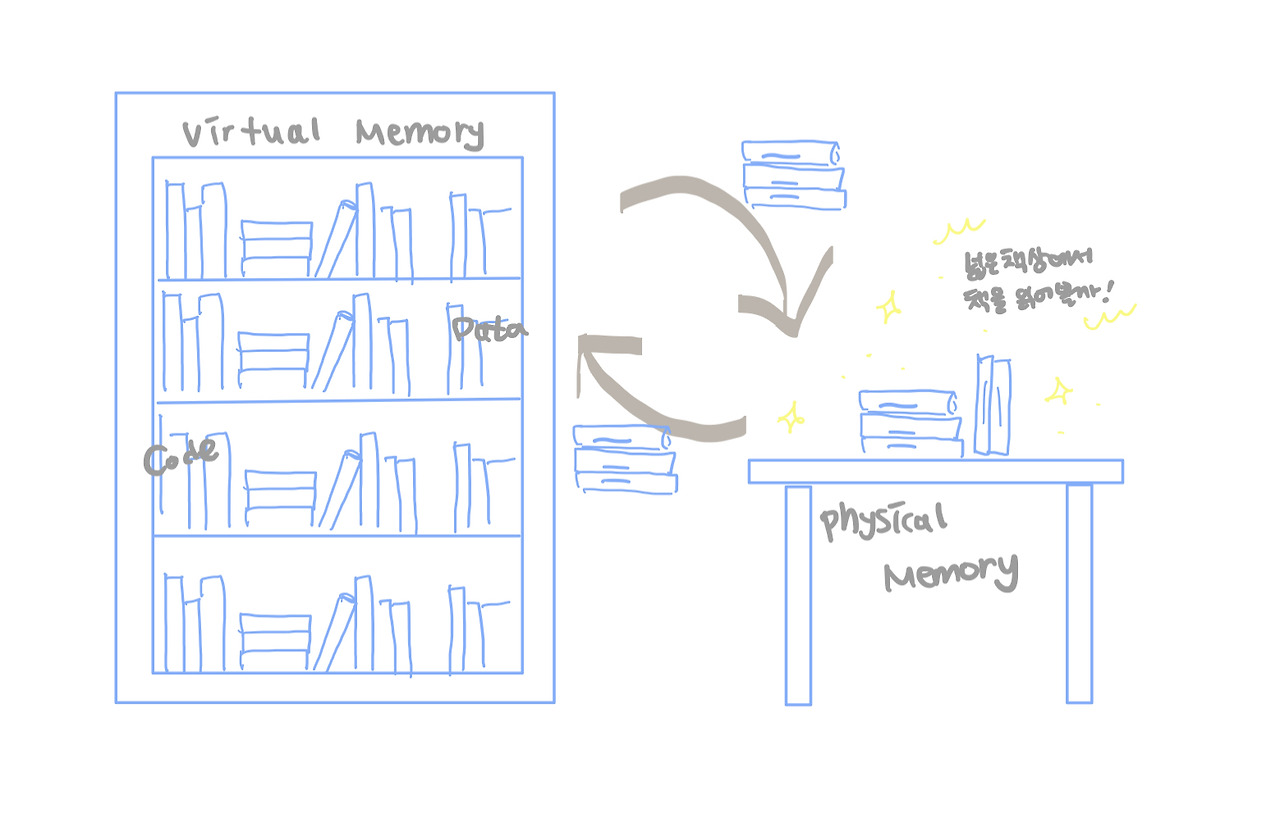 Virtual Memory
Data
Code
넓은 책상에서
책을 읽어볼까!
physical
Memory